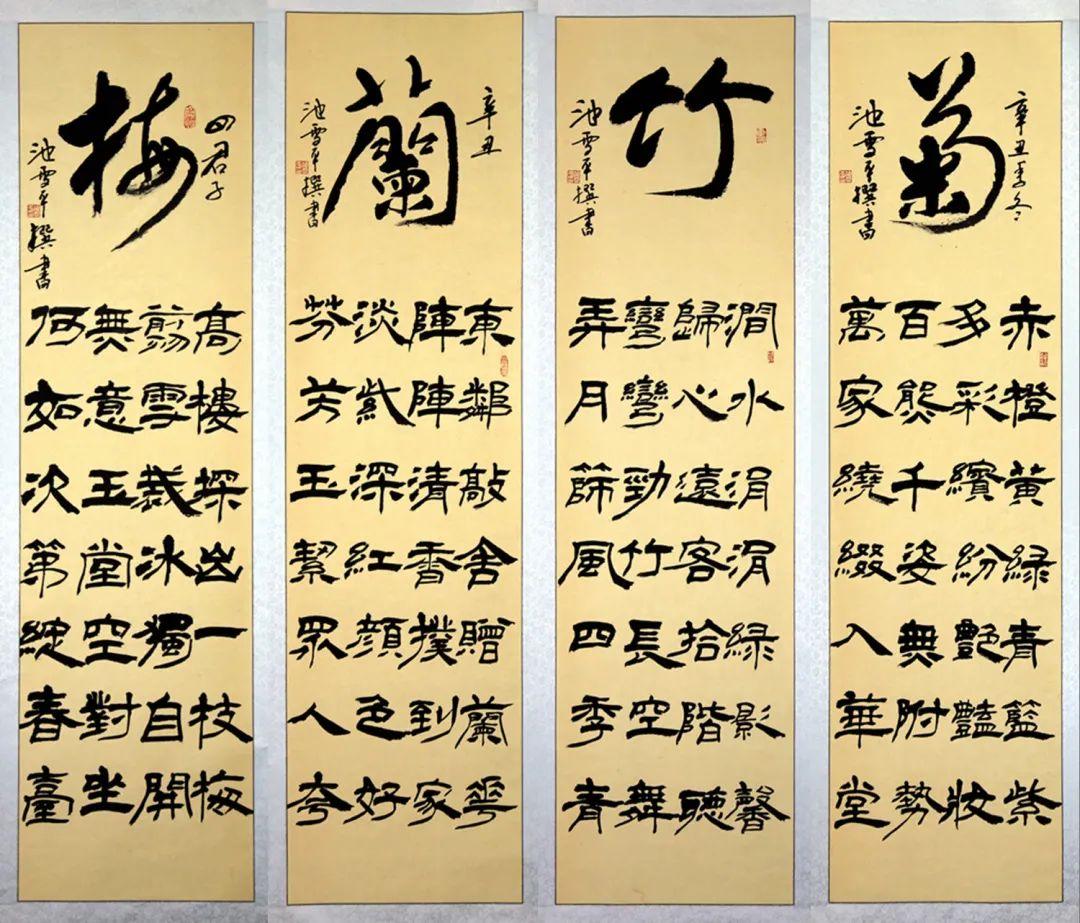 四君子
梅
池雪平撰書
高樓探出一枝梅
翦雪裁冰獨自開
無意玉堂空對坐
何如次第綻春臺
辛丑
蘭
池雪平撰書
東鄰敲舍贈蘭花
陣陣清香撲到家
淡紫深紅顏色好
芬芳玉絜眾人夸
竹
池雪平撰書
澗水涓涓綠影馨
歸心遠客拾階聽
彎彎勁竹長空舞
弄月篩風四季青
辛丑季冬
菊
池雪平撰書
赤橙黃綠青籃紫
多彩繽紛艷豔妝
百態千姿無附勢
萬家繞綴入華堂